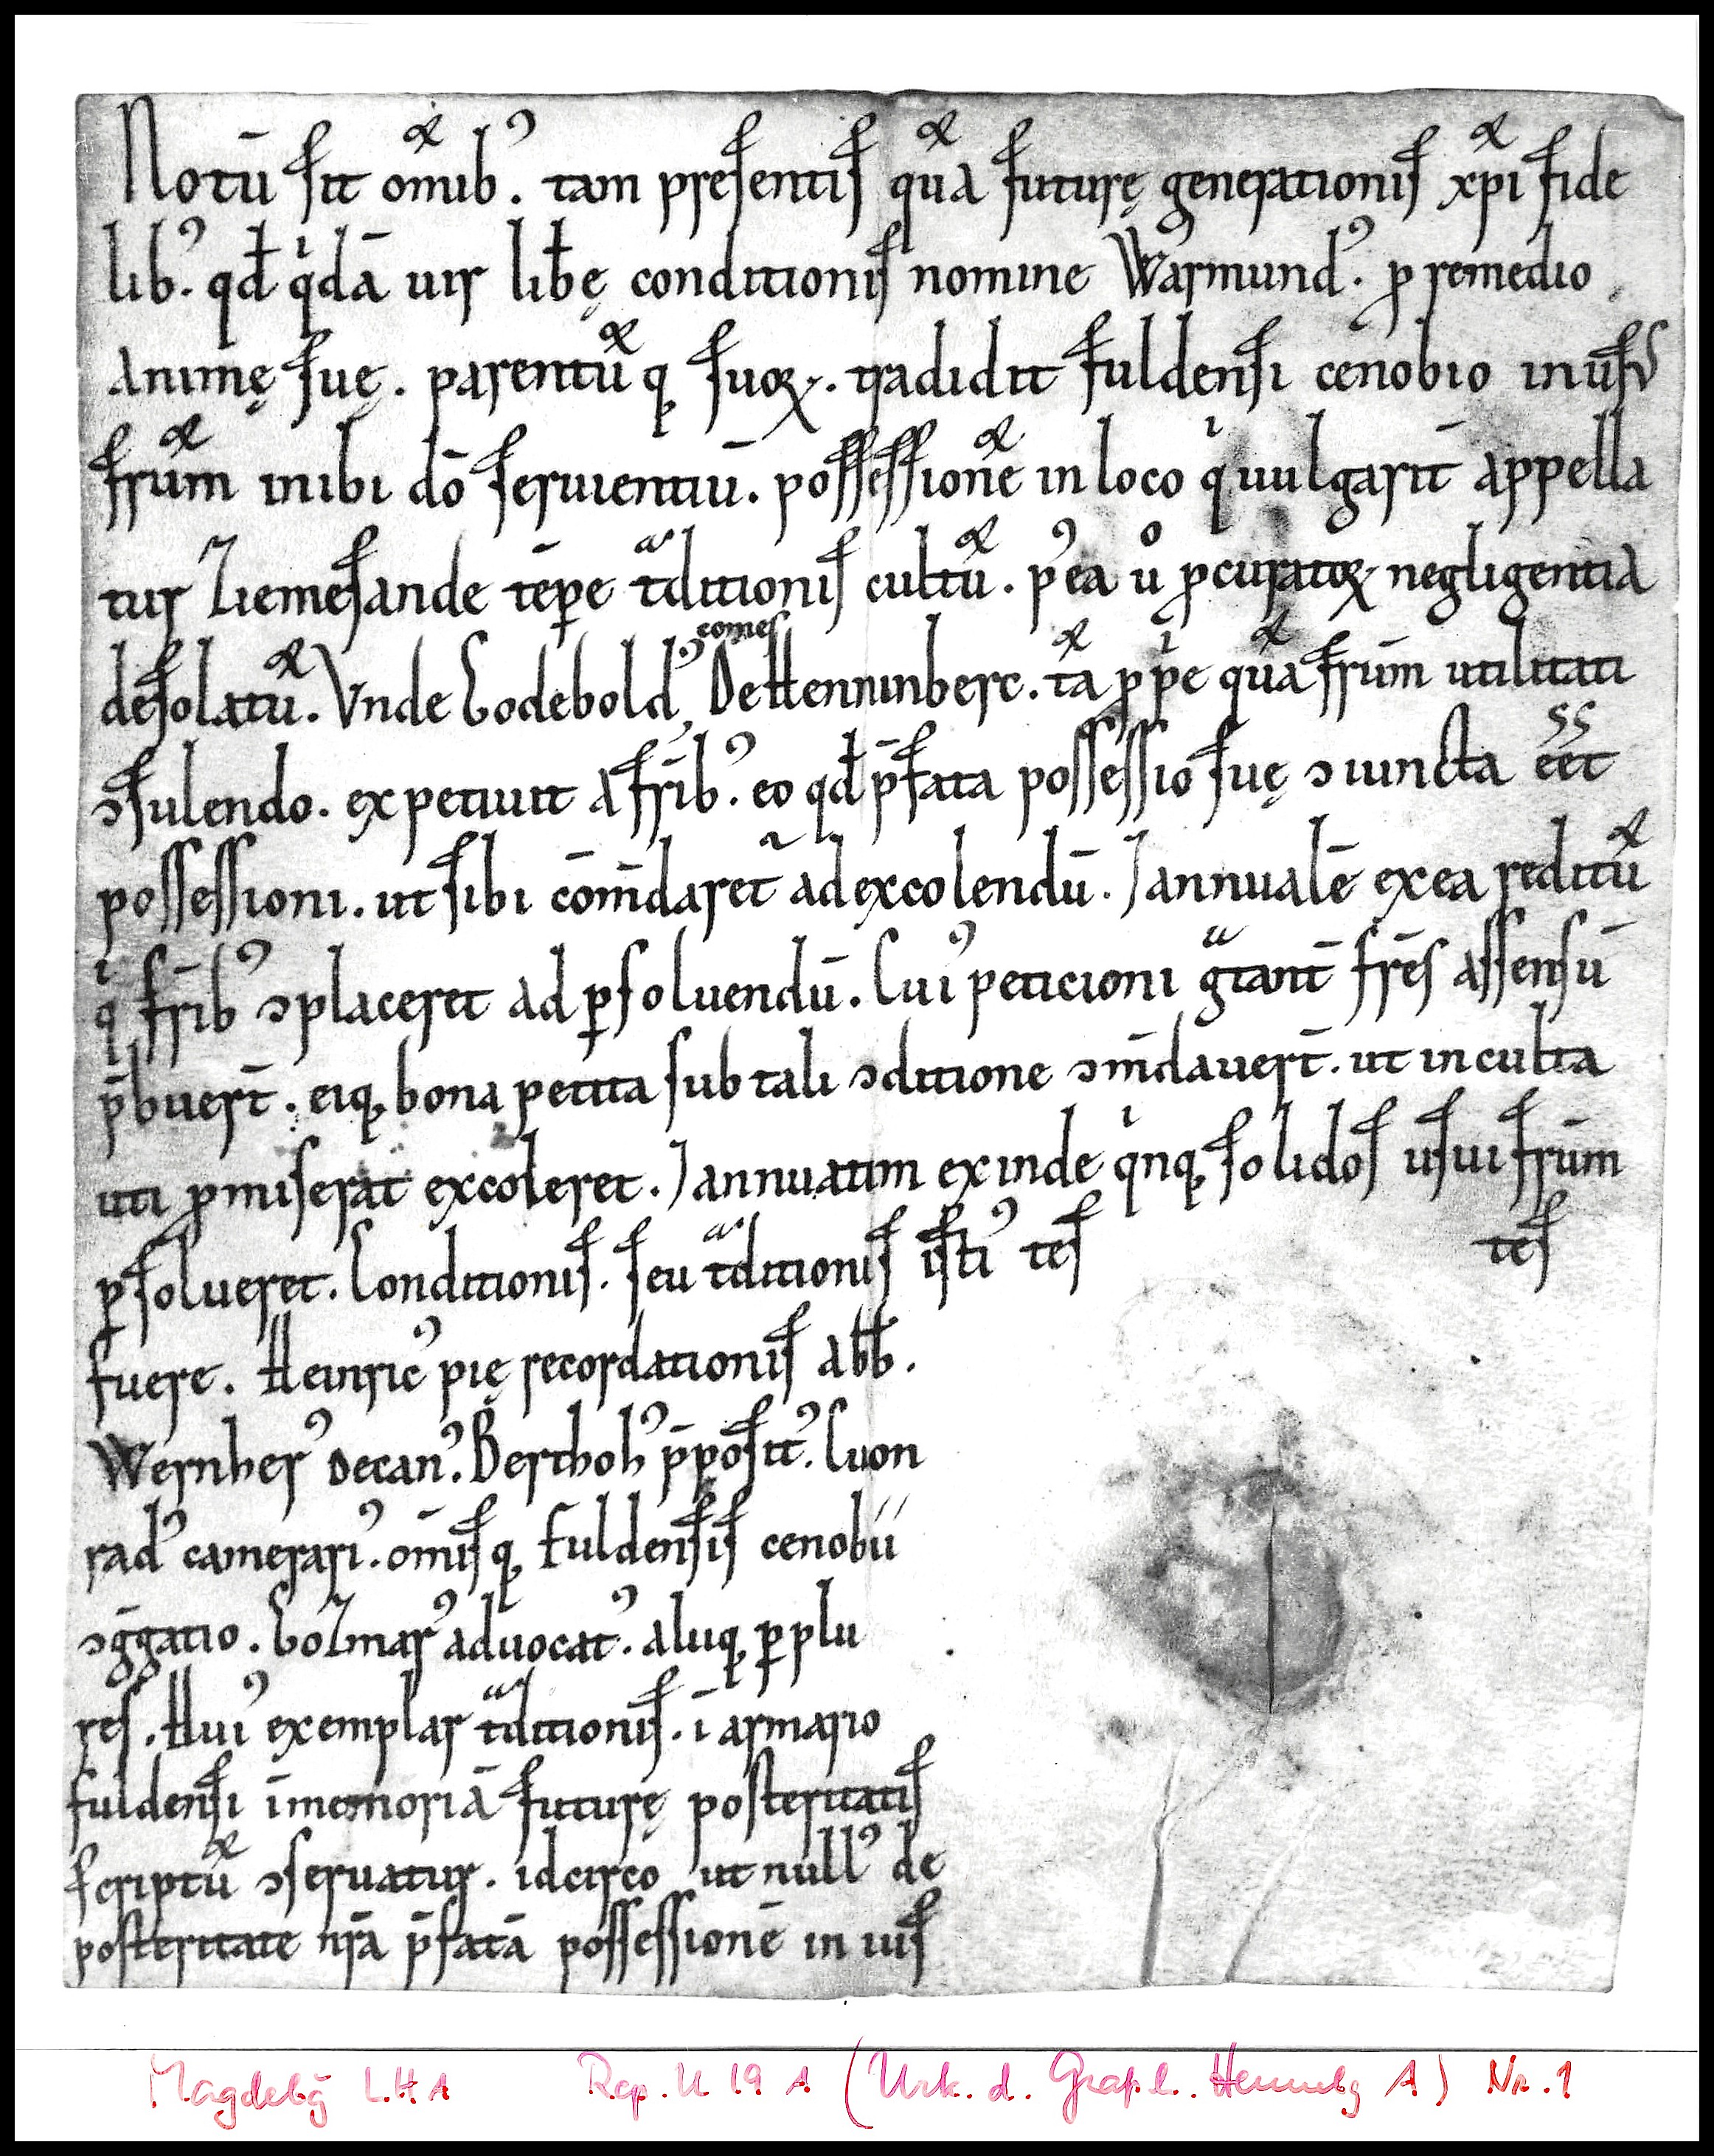 Notū sit om̄ibꝰ. tam presentis quā futurę generationis xp̄i fide
libꝰ. qđ qͥdā uir lib̄ę conditionis nomine Warmundꝰ. ꝓ remedio
animę suę. parentūq; suoꝝ. tradidit fuldensi cenobio in usū
frūm inibi dō seruientiū. possessionē in loco qͥ uulgarit̄ appella
tur Ziemesande tēꝑe tͣditionis cultū. pꝰ ea uͦ ꝓcuratoꝝ negligentia
desolatū. Vnde Godeboldꝰ comes De Hennınberc. tā ꝓpͥe quā frūm utilitati
ꝯsulendo. expetiuit a frībꝰ. eo qđ p̄fata possessio suę ꝯiuncta eēt
possessioni. ut sibi cōm̄daret ad excolendū. ⁊ annualē ex ea reditū
qͥ frībꝰ ꝯplaceret ad ꝑsoluendū. Cuiꝰ peticioni gͣtant̄ frēs assensū
p̄buert̄. eiq; bona petita sub tali ꝯditione ꝯm̄dauert̄. ut inculta
uti ꝓmiserat excoleret. ⁊ annuatim exinde qͥnq; solidos usui frūm
ꝑsolueret. Conditionis. seu tͣditionis istiꝰ tes tes
fuere. Heinricꝰ pię recordationis abb̄.
Wernherꝰ decanꝰ. Berthohꝰ p̄positꝰ. Cuon
radꝰ camerariꝰ. om̄isq; fuldensis cenobii
ꝯḡgatio. Golmarꝰ aduocatꝰ. aliiq; ꝑplu
res. Huiꝰ exemplar tͣditionis. ī armario
fuldensi ī memoriā futurę posteritatis
scriptū ꝯseruatur. idcirco ut nullꝰ de
posteritate nr̄a p̄fatā possessionē in ius
Magdebg L.H.A Rep. U 19 A (Urk. d. Grafsch. Hennebg A) Nr. 1